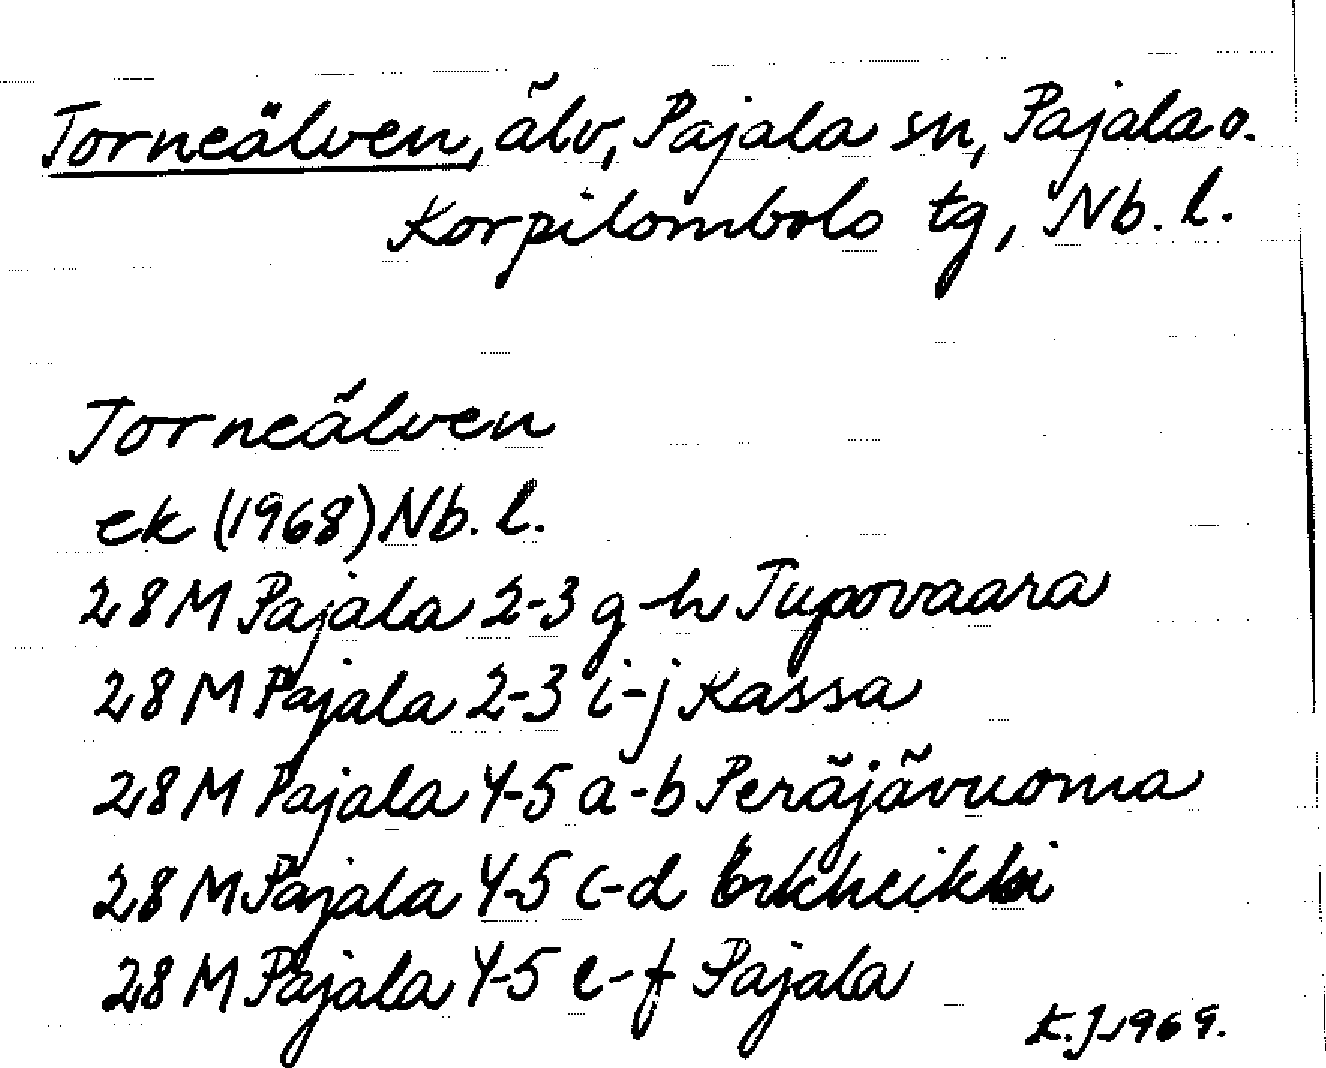 Torneälven, älv, Pajala sn, Pajala o.
Korpilombolo tg, Nb. l.
Torneälven
ek (1968) Nb. l.
28 M Pajala 2-3 g-h Tupovaara
28 M Pajala 2-3 i-j Kassa
28 M Pajala 4-5 a-b Peräjävuoma
28 M Pajala 4-5 c-d Erkheikki
28 M Pajala 4-5 e-f Pajala
K.J. 1969.